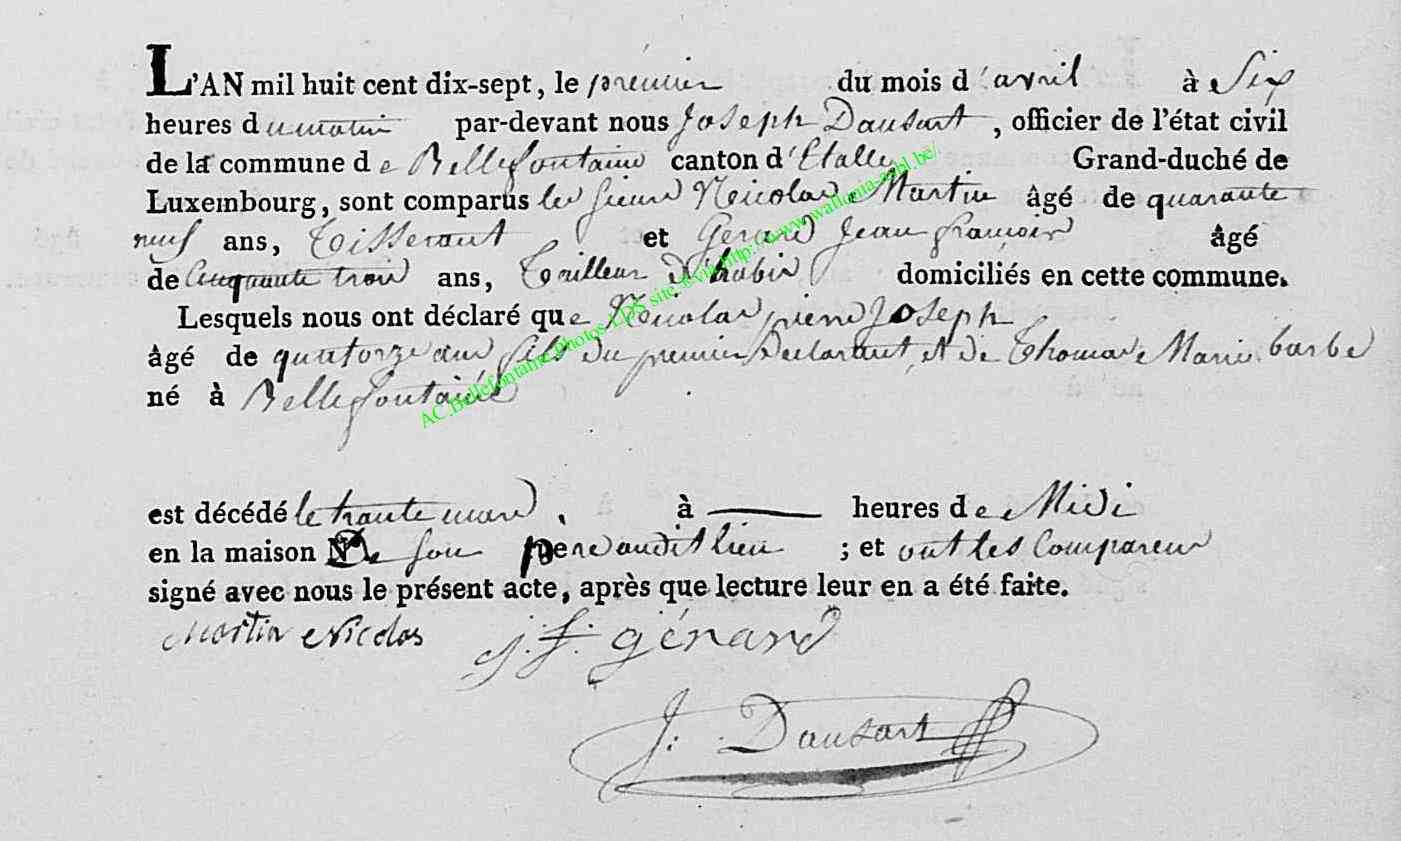 L'AN mil huit cent dix-sept, le premier du mois d'avril à Six
heures du matin par-devant nous Joseph Dausart, officier de l'état civil
de la commune de Bellefontaine canton d'Etalle Grand-duché de
Luxembourg, sont comparus les sieurs Nicolas Martin âgé de quarante
neuf ans, Tisserant et Gerard Jean françois âgé
de Cinquante trois ans, Tailleur d'habis domiciliés en cette commune.
Lesquels nous ont déclaré que Nicolas pierre Joseph
âgé de quatorze ans fils du premier Declarant, et de Thomas Marie barbe
né à Bellefontaine
AC.Bellefontaine Photos LDS site via http://www.wallonia-asbl.be/
est décédé le trante mars, à heures de Midi
en la maison de son pere audit lieu ; et ont les Comparens
signé avec nous le présent acte, après que lecture leur en a été faite.
Martin Nicolas j.f. gérard
J. Dausart